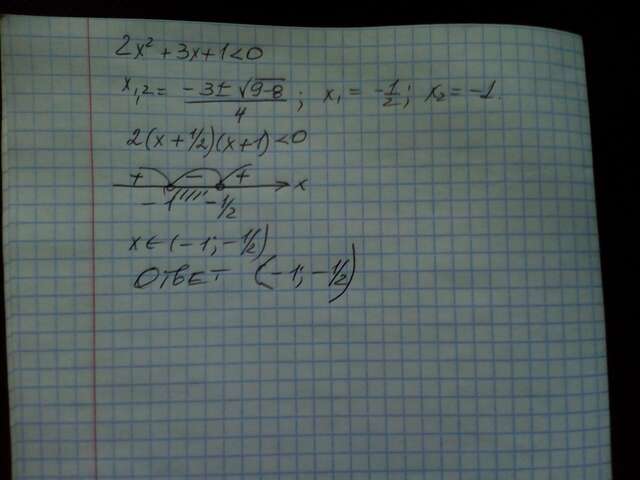 2x² + 3x + 1 < 0
x₁,₂ = (-3 ± √(9-8))/4 ; x₁ = -1/2 ; x₂ = -1.
2(x + 1/2)(x + 1) < 0
+ - + x
-1 -1/2
x ∈ (-1; -1/2)
Ответ (-1; -1/2)